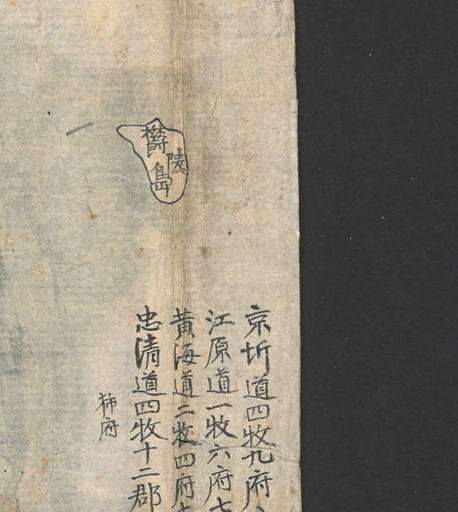 欝陵島
京圻道四牧九府八
江原道一牧六府七
黄海道二牧四府
忠清道四牧十二郡
府